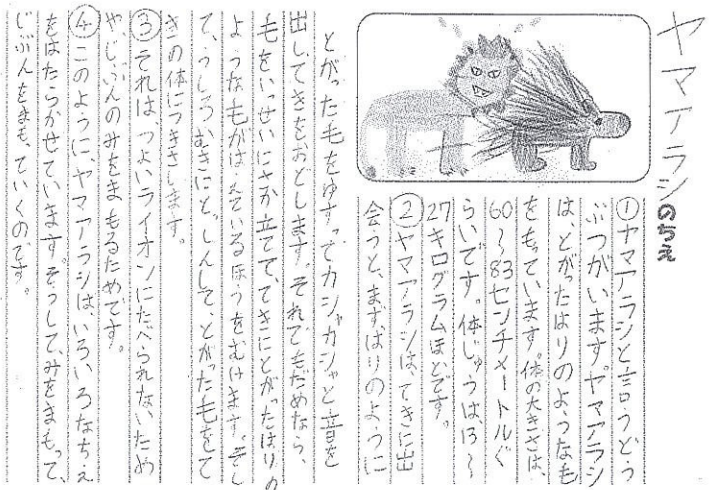 ヤマアラシのちえ
①ヤマアラシと言うどう
ぶつがいます。ヤマアラシ
は、とがったはりのようなも
をもっています。体の大きさは、
60〜83センチメートルぐ
らいです。体じゅうは、13〜
27キログラムほどです。
②ヤマアラシは、てきに出
会うと、まずはりのように
とがった毛をゆすってカシャカシャと音を
出しててきをおどします。それでもだめなら、
毛をいっせいにさか立てて、てきにとがったはりの
ような毛がはえているほうをむけます。そし
て、うしろむきにとっしんして、とがった毛をて
きの体につきさします。
③それは、つよいライオンにたべられないため
や、じぶんのみをまもるためです。
④このように、ヤマアラシは、いろいろなちえ
をはたらかせています。そうして、みをまもって、
じぶんをまもっていくのです。